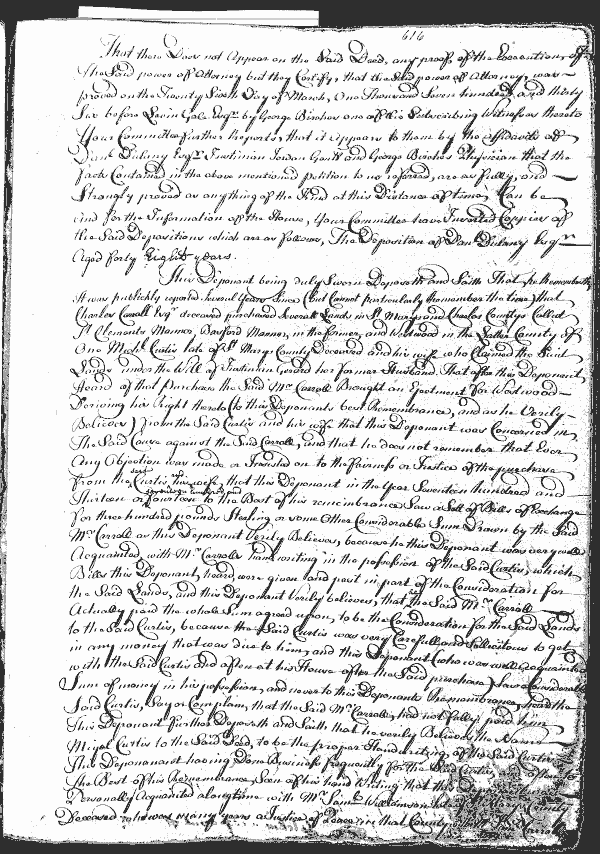 616
That there Does not Appear on the Said Deed, any proof of the Execution, of
The Said power of Attorney but they Certify, that the Said power of Attorney, was
proved on the Twenty Sixth Day of March, One Thousand Seven hundred and thirty
Six before Levin Gale Esqr. by George Birchow one of the Subscribing Witnesses thereto
Your Committee further Reports that it appears to them by the Affidavits of
Danl. Dulany Esqr. Justinian Jordan Gent. and George Birchow Physician that the
facts Contained in the above mentioned petition to us referred, are as fully, and
Strongly proved as anything of the Kind at this Distance of time, Can be
and for the Information of the House, Your Committee have Inserted Copies of
the Said Depositions which are as follows, The Deposition of Danl. Dulany Esqr.
Aged forty Eight years.
This Deponent being duly Sworn Deposeth and Saith That he Remembreth
it was publickly reported Several Years Since (But Cannot particularly Remember the time) that
Charles Carroll Esqr. deceased purchased Several Lands in St. Marys and Charles Countys Called
St. Clements Mannor, Basford Mannor, in the former, and Westwood in the Latter County of
One Michl. Curtis late of St. Marys County Deceased and his wife who Claimed the Said
Lands under the Will of Justinian Gerard her former Husband. That after this Deponent
Heard of that purchase the Said Mr. Carroll Brought an Ejectment for Westwood
Deriving his Right thereto (to this Deponents best Remembrance, and as he Verily
Believes) from the Said Curtis and his wife that this Deponent was Concerned in
The Said Cause against the Said Carroll, and that he does not remember that Ever
Any Objection was made or Insisted on to the fairness or Justice of the purchase
from the said Curtis his wife, that this Deponent in the Year Seventeen hundred and
Thirteen or fourteen to the Best of his remembrance Saw a Sett of Bills of Exchange
for three hundred pounds Sterling or some Other Considerable Sum Drawn by the Said
Mr. Carroll as this Deponent Verily Believes, because he this Deponent was very well
Acquainted, with Mr. Carrolls handwriting in the possession of the Said Curtis, which
Bills this Deponent, heard, were given and past in part of the Consideration for
the Said Lands, and this Deponent Verily believes, that the Said Mr. Carroll
Actually paid the whole Sum agreed upon, to be the Consideration for the Said Lands
to the Said Curtis, because the Said Curtis was very Carefull and Sollicitous to get
in any money that was due to him, and this Deponent (who was well acquainted
with the Said Curtis and often at his House after the Said purchase) Saw Considerable
Sum of money in his possession, and never to this Deponents Remembrance, heard the
Said Curtis, Say or Complain, that the Said Mr. Carroll, had not fully paid him
This Deponent further Deposeth and Saith that he verily Believes the Name
Michl Curtis to the Said Deed, to be the proper Handwriting of the Said Curtis
this Deponent having Done Business frequently for the Said Curtis and often to
the Best of his Remembrance, Seen of his hand Writing that this
Personally Acquainted along time with Mr. Saml. Williamson late of
Deceased who was many years a Justice of Peace in that County